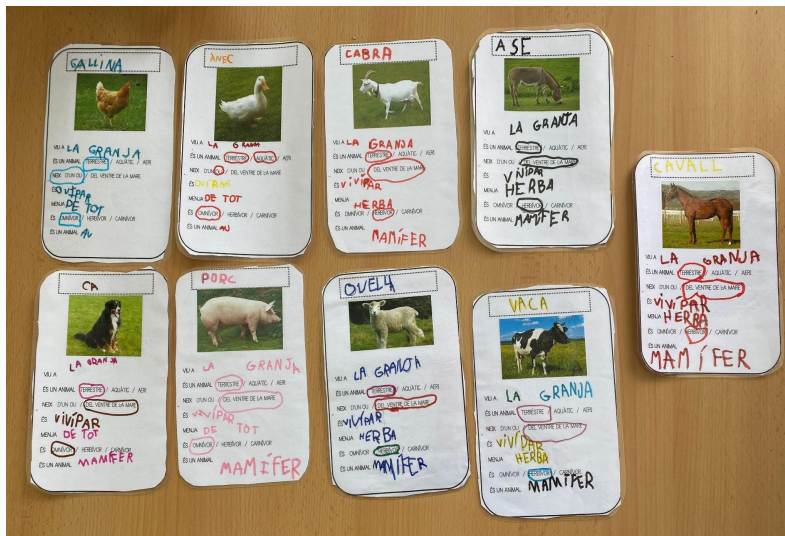 GALLINA
VIU A LA GRANJA
ÉS UN ANIMAL TERRESTRE / AQUÀTIC / AERI
NEIX D'UN OU / DEL VENTRE DE LA MARE
ÉS OVÍPAR
MENJA DE TOT
ÉS OMNÍVOR / HERBÍVOR / CARNÍVOR
ÉS UN ANIMAL AU
ÀNEC
VIU A LA GRANJA
ÉS UN ANIMAL TERRESTRE / AQUÀTIC / AERI
NEIX D'UN OU / DEL VENTRE DE LA MARE
ÉS OVIPAR
MENJA DE TOT
ÉS OMNÍVOR / HERBÍVOR / CARNÍVOR
ÉS UN ANIMAL AU
CABRA
VIU A LA GRANJA
ÉS UN ANIMAL TERRESTRE / AQUÀTIC / AERI
NEIX D'UN OU / DEL VENTRE DE LA MARE
ÉS VIVÍPAR
MENJA HERBA
ÉS OMNÍVOR / HERBÍVOR / CARNÍVOR
ÉS UN ANIMAL MAMÍFER
ASE
VIU A LA GRANJA
ÉS UN ANIMAL TERRESTRE / AQUÀTIC / AERI
NEIX D'UN OU / DEL VENTRE DE LA MARE
ÉS VIVIPAR
MENJA HERBA
ÉS OMNÍVOR / HERBÍVOR / CARNÍVOR
ÉS UN ANIMAL MAMÍFER
CAVALL
VIU A LA GRANJA
ÉS UN ANIMAL TERRESTRE / AQUÀTIC / AERI
NEIX D'UN OU / DEL VENTRE DE LA MARE
ÉS VIVÍPAR
MENJA HERBA
ÉS OMNÍVOR / HERBÍVOR / CARNÍVOR
ÉS UN ANIMAL
MAMÍFER
CA
VIU A LA GRANJA
ÉS UN ANIMAL TERRESTRE / AQUÀTIC / AERI
NEIX D'UN OU / DEL VENTRE DE LA MARE
ÉS VIVÍPAR
MENJA DE TOT
ÉS OMNÍVOR / HERBÍVOR / CARNÍVOR
ÉS UN ANIMAL MAMÍFER
PORC
VIU A LA GRANJA
ÉS UN ANIMAL TERRESTRE / AQUÀTIC / AERI
NEIX D'UN OU / DEL VENTRE DE LA MARE
ÉS VIVÍPAR
MENJA DE TOT
ÉS OMNÍVOR / HERBÍVOR / CARNÍVOR
ÉS UN ANIMAL MAMÍFER
VIU A LA GRANJA
ÉS UN ANIMAL TERRESTRE / AQUÀTIC / AERI
NEIX D'UN OU / DEL VENTRE DE LA MARE
ÉS VIVÍPAR
MENJA HERBA
ÉS OMNÍVOR / HERBÍVOR / CARNÍVOR
ÉS UN ANIMAL MAMÍFER
VACA
VIU A LA GRANJA
ÉS UN ANIMAL TERRESTRE / AQUÀTIC / AERI
NEIX D'UN OU / DEL VENTRE DE LA MARE
ÉS VIVÍPAR
MENJA HERBA
ÉS OMNÍVOR / HERBÍVOR / CARNÍVOR
ÉS UN ANIMAL MAMÍFER